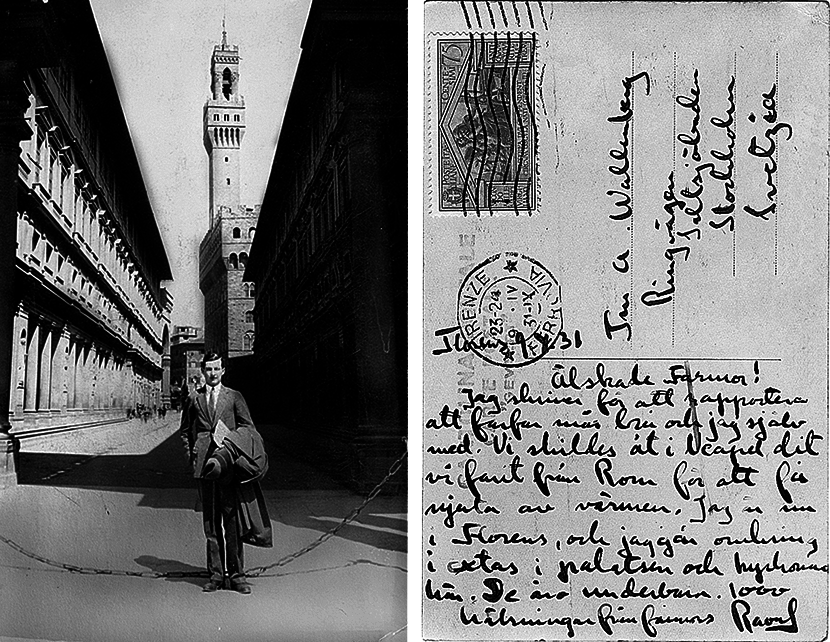 75
FIRENZE FERROVIA
23-24
9 IV
31-IX
Fru A. Wallenberg
Ringvägen
Saltsjöbaden
Stockholm
Florens 9 31
Älskade Farmor!
Jag skriver för att rapportera
att farfar mår bra och jag själv
med. Vi skildes åt i Neapel dit
vi farit från Rom för att få
njuta av värmen. Jag är nu
i Florens, och jag går omkring
i extas i palatsen och kyrkorna
här. De äro underbara. 1000
hälsningar från farmors Raoul